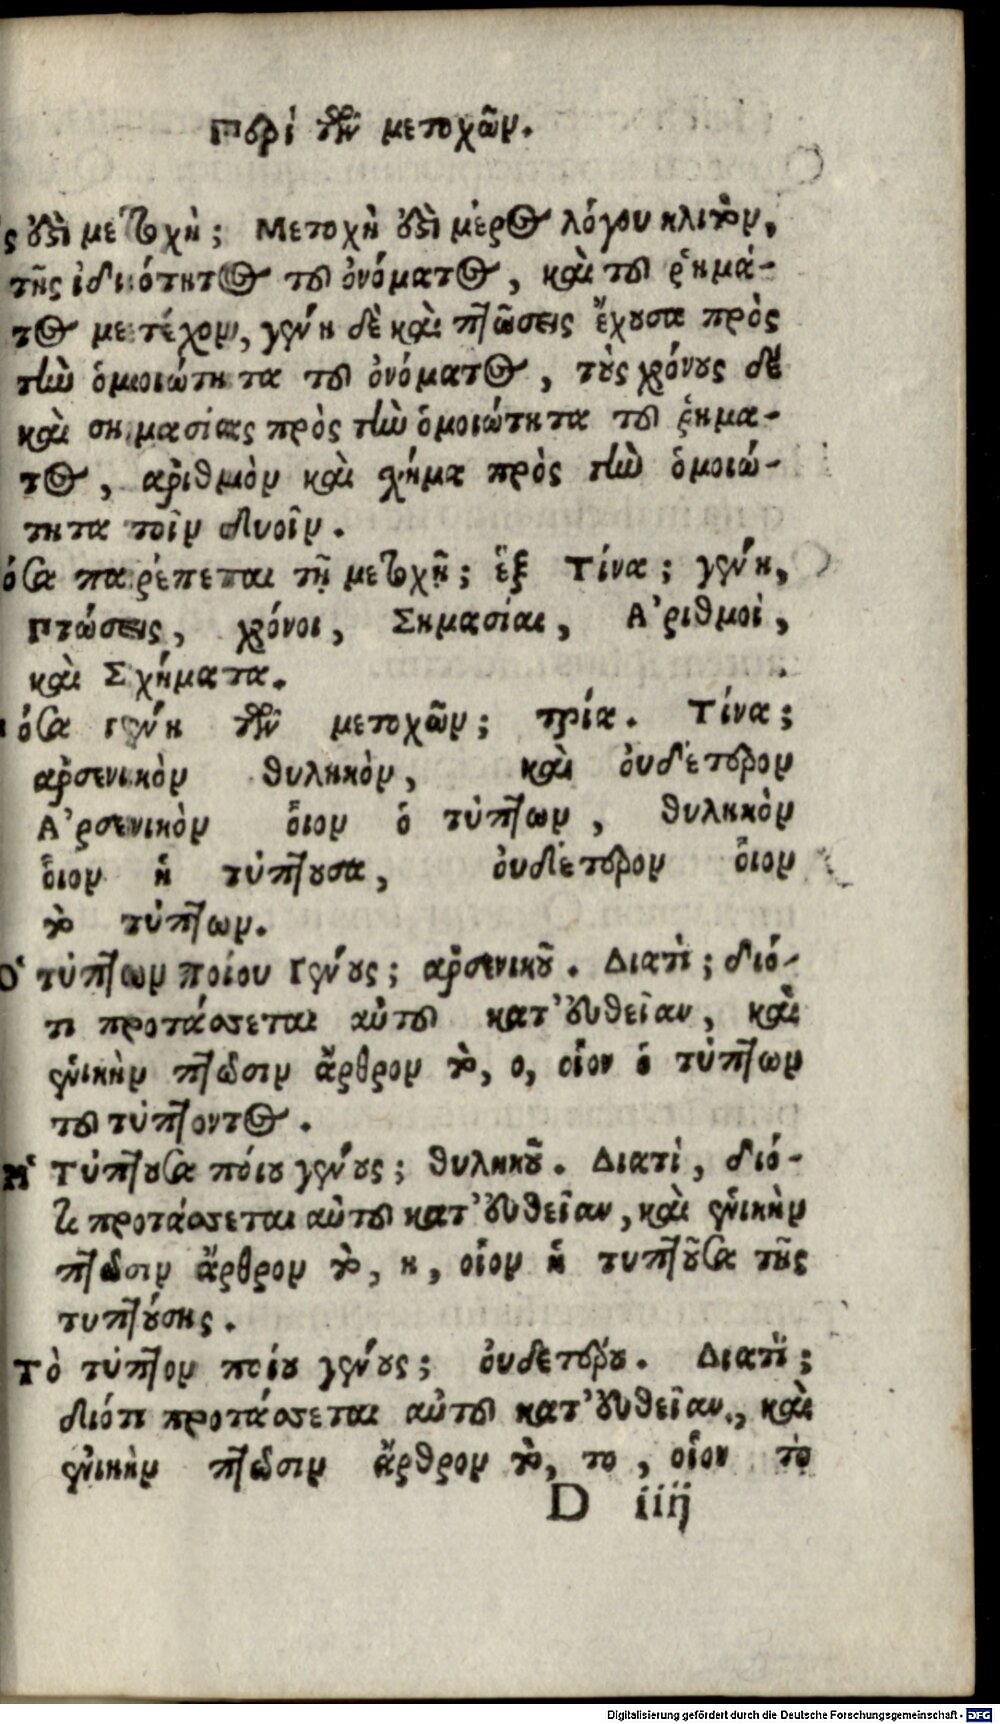 Περὶ τῶν μετοχῶν.
ς ἐστὶ μετοχή; Μετοχὴ ἐστὶ μέρος λόγου κλιτὸν,
τῆς ἰδιότητος τοῦ ὀνόματος, καὶ τοῦ ῥημά-
τος μετέχον, γένη δὲ καὶ πτώσεις ἔχουσα πρὸς
τὴν ὁμοιώτητα τοῦ ὀνόματος, τοὺς χρόνους δὲ
καὶ σημασίας πρὸς τὴν ὁμοιώτητα τοῦ ῥημα-
τος, ἀριθμὸν καὶ χῆμα πρὸς τὴν ὁμοιώ-
τητα τοῖν δυοῖν.
όσα παρέπεται τῇ μετοχῇ; ἓξ Τίνα; γένη,
Πτώσεις, χρόνοι, Σημασίαι, Ἀριθμοὶ,
καὶ Σχήματα.
όσα Γένη τῶν μετοχῶν; τρία. Τίνα;
ἀρσενικὸν θυληκὸν, καὶ ὀυδέτερον
Ἀρσενικὸν ὅιον ὁ τύπτων, θυληκὸν
ὅιον ἡ τύπτουσα, ὀυδέτερον ὅιον
τὸ τύπτων.
Ὁ τύπτων ποίου Γένους; ἀρσενικοῦ. Διατὶ; διό-
τι προτάσσεται αὐτοῦ κατ' ἐυθεῖαν, καὶ
γενικὴν πτῶσιν ἄρθρον τὸ, ο, οἷον ὁ τύπτων
τοῦ τύπτοντος.
Ἡ τύπτουσα πόιου γένους; θυληκοῦ. Διατὶ, διό-
τι προτάσσεται αὐτοῦ κατ' ἐυθεῖαν, καὶ γενικὴν
πτῶσιν ἄρθρον τὸ, η, οἷον ἡ τυπτοῦσα τῆς
τυπτούσης.
Τὸ τύπτον ποίου γένους; ὀυδετέρου. Διατὶ;
διότι προτάσσεται αὐτοῦ κατ' ἐυθεῖαν, καὶ
γενικὴν πτῶσιν ἄρθρον τὸ, το, οἷον τὸ
D iiij
Digitalisierung gefördert durch die Deutsche Forschungsgemeinschaft - DFG